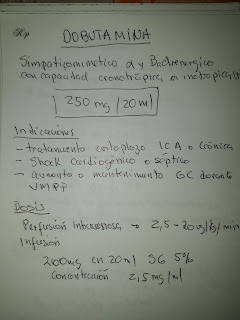 DOBUTAMINA
Simpaticomimetico α y Badrenergico
con capacidad cronotrópica e inotropica (+)
250 mg / 20 ml
Indicacions
- tratamiento colapso ICA o Crónica
- Shock Cardiogénico o séptico
- aumento o mantenimiento GC durante
VMPP
Dosis
Perfusión Intravenosa → 2,5 - 20 ug/kg/min
Infusión
200mg en 20ml SG 5%
Concentración 2,5 mg/ml